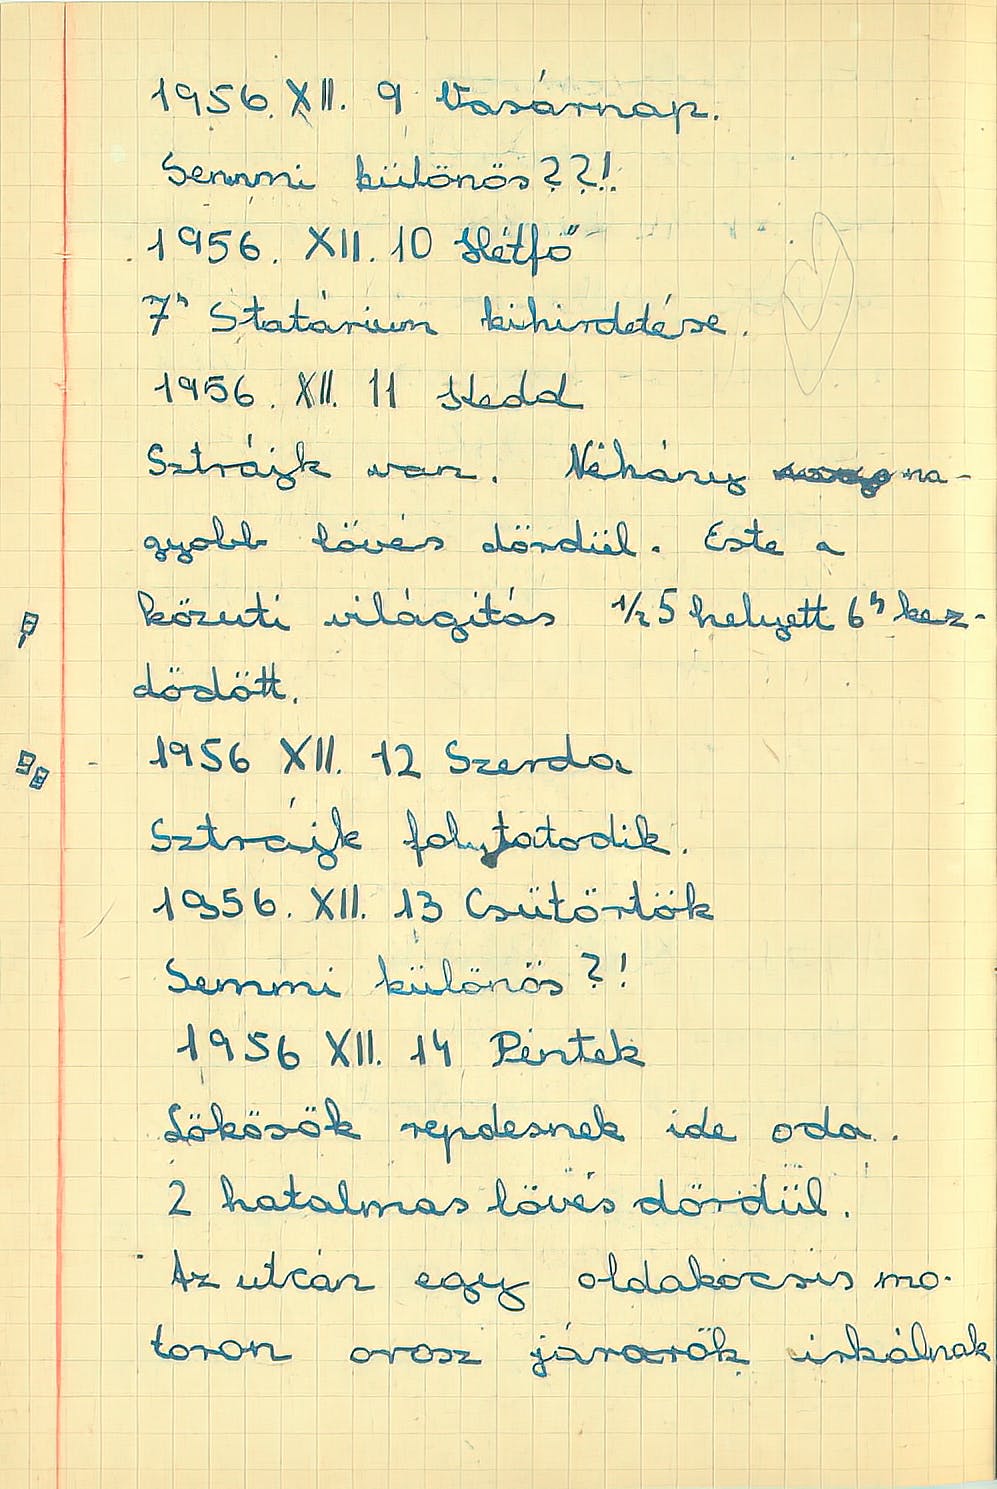 1956. XII. 9 Vasárnap.
Semmi különös??!
1956. XII. 10 Hétfő
7ʰ Statárium kihirdetése.
1956. XII. 11 Kedd
Sztrájk van. Néhány na-
gyobb lövés dördül. Este a
közuti világitás 1/2 5 helyett 6ʰ kez-
dödött.
1956 XII. 12 Szerda
Sztrájk folytatodik.
1956. XII. 13 Csütörtök
Semmi különös?!
1956 XII. 14 Péntek
Lökösök repdesnek ide oda.
2 hatalmas lövés dördül.
Az utcán egy oldakocsis mo-
toron orosz járarök irkálnak